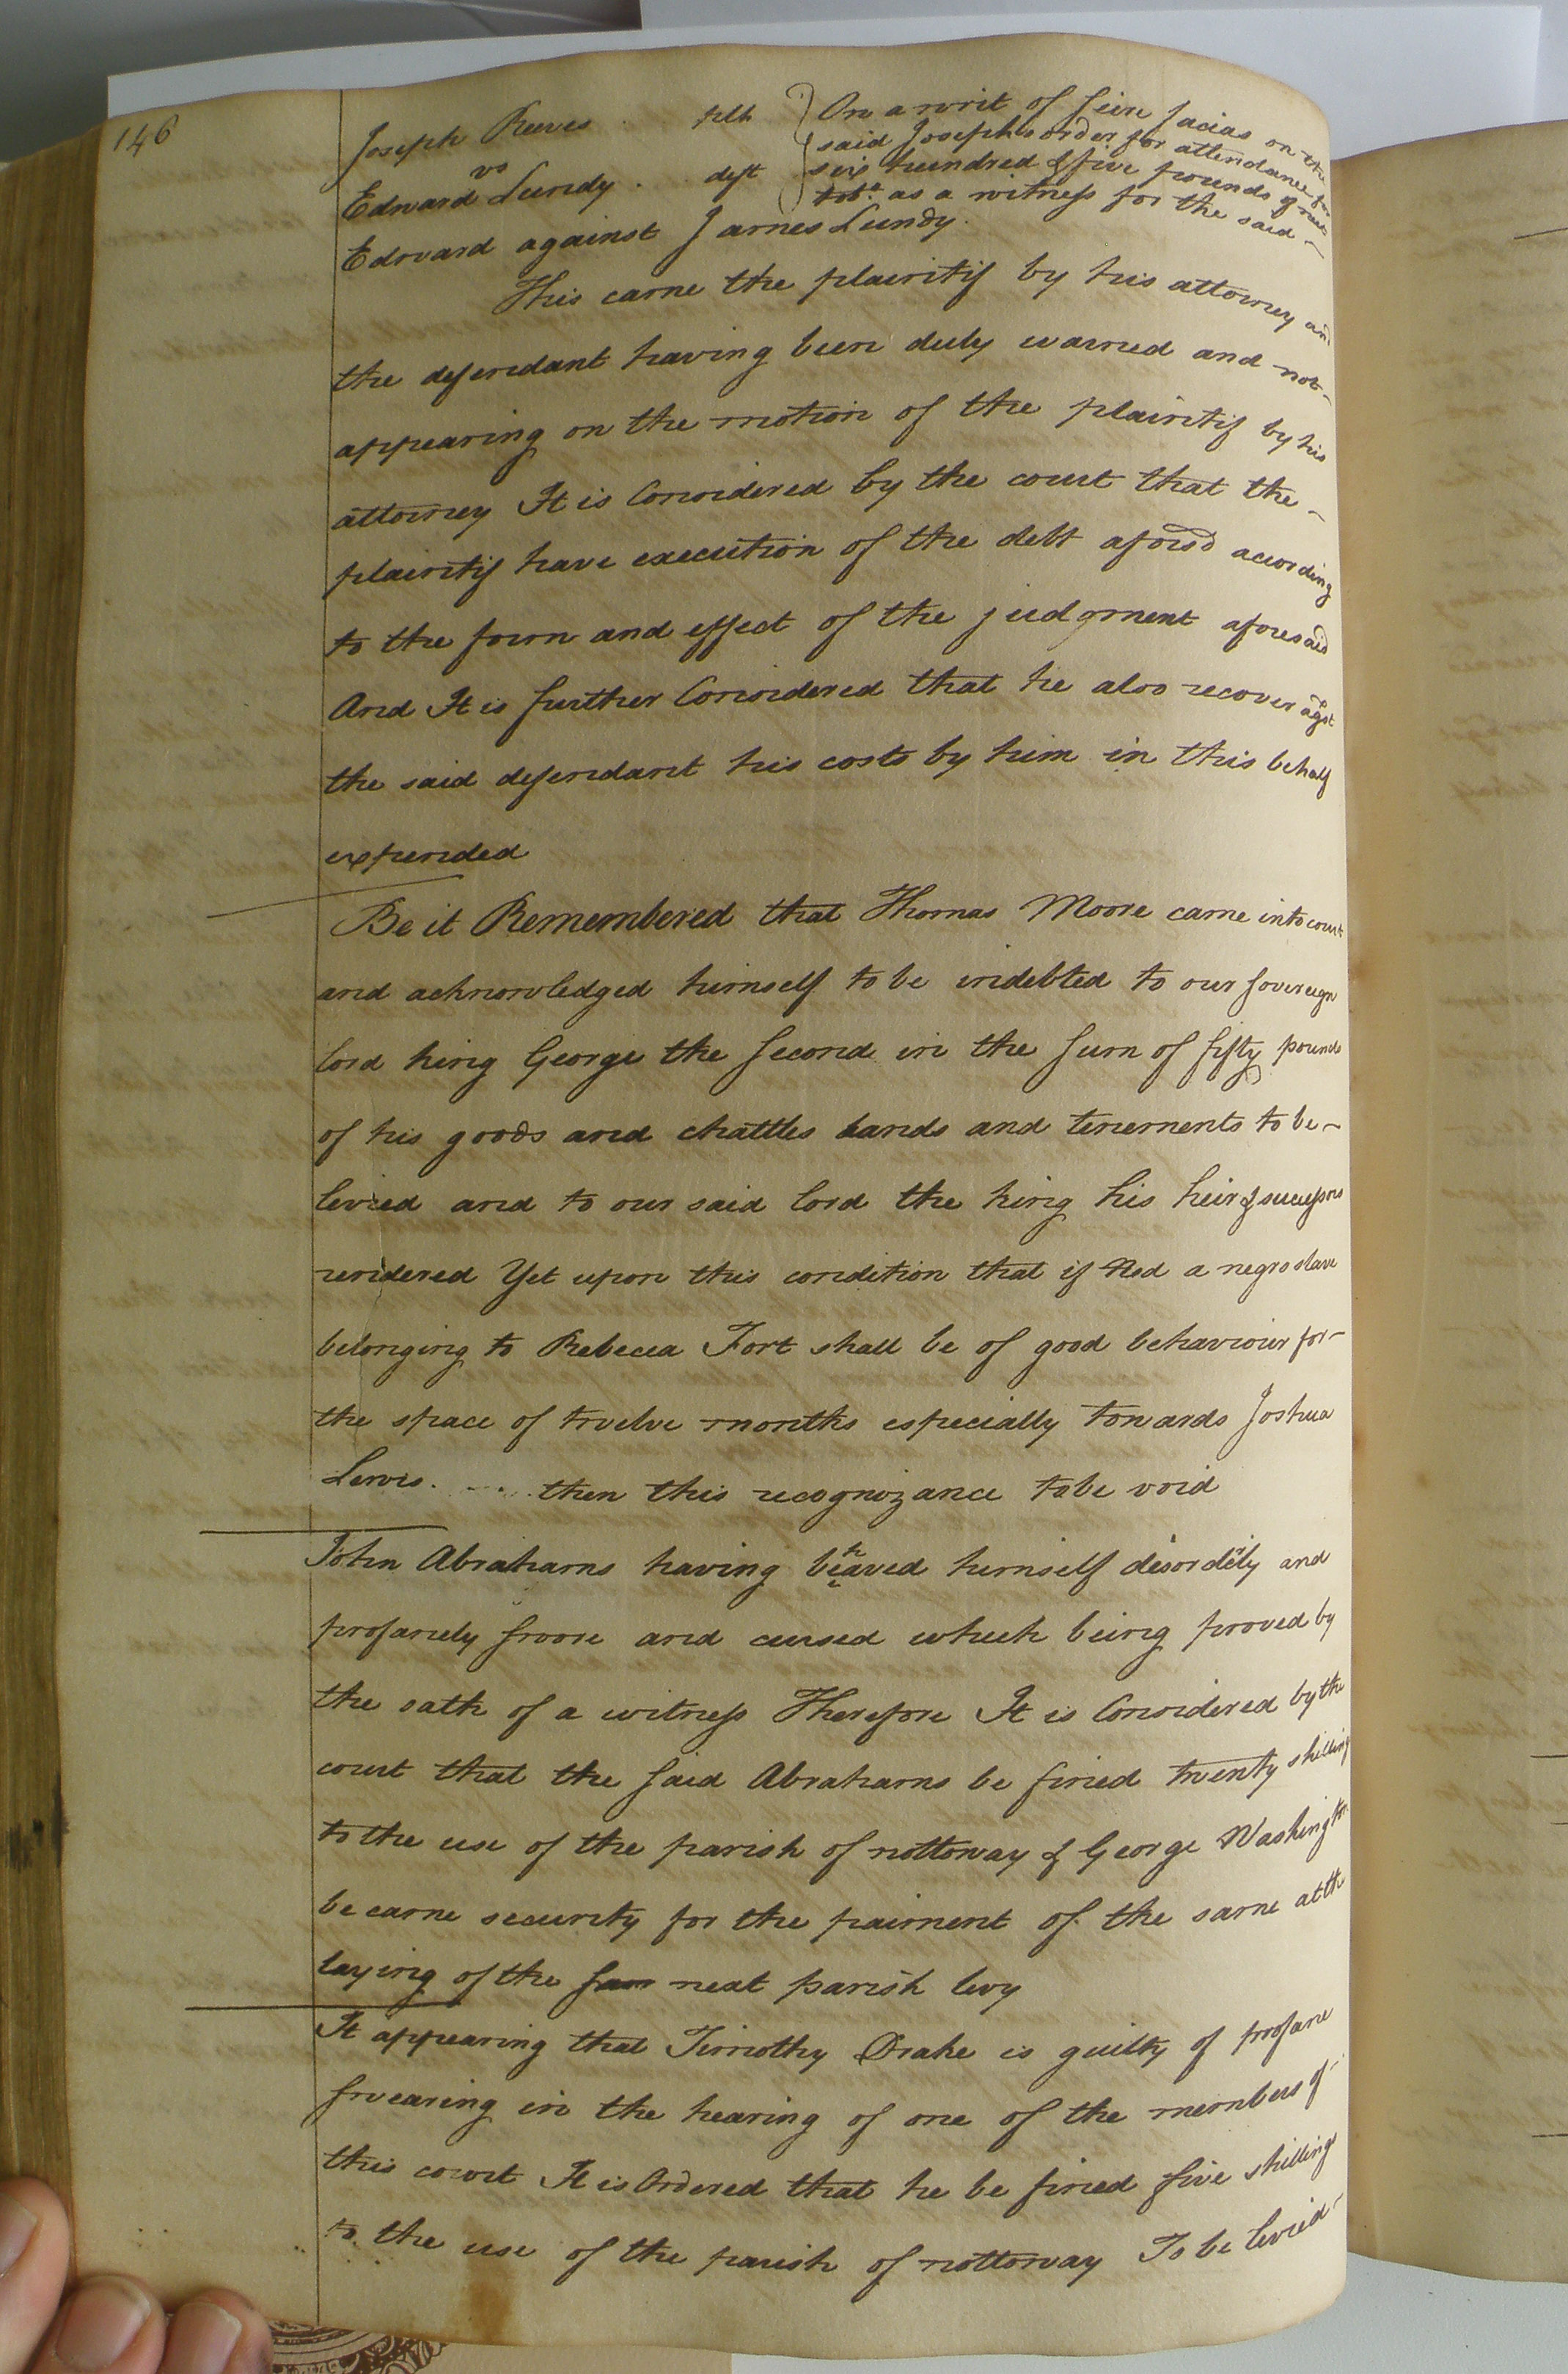 146
Joseph Reeves . plt On a writ of scire facias on the
vs said Joseph's order for attendance for
Edward Lundy . . deft six hundred & five pounds of
tobo. as a witness for the said
Edward against James Lundy.
This came the plaintif by his attorney and
the defendant having been duly warned and not
appearing on the motion of the plaintif by his
attorney It is Considered by the court that the
plaintif have execution of the debt aforesd according
to the form and effect of the judgment aforesaid
And It is further Considered that he also recover agst
the said defendant his costs by him in this behalf
expended
Be it Remembered that Thomas Moore came into court
and acknowledged himself to be indebted to our sovereign
lord king George the Second in the sum of fifty pounds
of his goods and chattles lands and tenements to be
levied and to our said lord the king his heir & successors
rendered Yet upon this condition that if Ned a negro slave
belonging to Rebecca Fort shall be of good behaviour for
the space of twelve months especially towards Joshua
Lewis. . . . . then this recognizance to be void
John Abrahams having behaved himself disorderly and
profanely swore and cursed which being proved by
the oath of a witness Therefore It is Considered by the
court that the said Abrahams be fined twenty shillings
to the use of the parish of nottoway & George Washington
became security for the paiment of the same at the
laying of the next parish levy
It appearing that Timothy Drake is guilty of profane
swearing in the hearing of one of the members of
this court It is Ordered that he be fined five shillings
to the use of the parish of nottoway To be levied